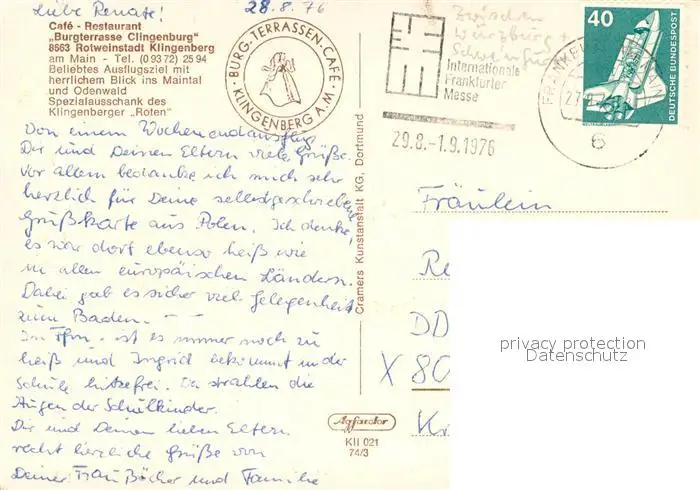 Liebe Renate!
28.8.76
Café - Restaurant
„Burgterrasse Clingenburg"
8563 Rotweinstadt Klingenberg
am Main - Tel. (0 93 72) 25 94
Beliebtes Ausflugsziel mit
herrlichem Blick ins Maintal
und Odenwald
Spezialausschank des
Klingenberger „Roten"
· BURG-TERRASSEN-CAFÉ ·
KLINGENBERG A.M.
Von einem Wochenendausflug
Dir und Deinen Eltern viele Grüße.
Vor allem bedanke ich mich sehr
herzlich für Deine selbstgeschriebene
Grußkarte aus Polen. Ich denke,
es war dort ebenso heiß wie
in allen europäischen Ländern.
Dabei gab es sicher viel Gelegenheit
zum Baden. - -
In Ffm. ist es immer noch zu
heiß und Ingrid bekommt in der
Schule hitzefrei. Da strahlen die
Augen der Schulkinder.
Dir und Deinen lieben Eltern
recht herzliche Grüße von
Deiner Frau Böcher und Familie
Cramers Kunstanstalt KG, Dortmund
Zwischen
Würzburg +
Internationale
Frankfurter
Messe
29.8.-1.9.1976
FRANKFURT
6
40
DEUTSCHE BUNDESPOST
Fräulein
Re
DD
X 80
Kr
privacy protection
Datenschutz
Agfacolor
KII 021
74/3